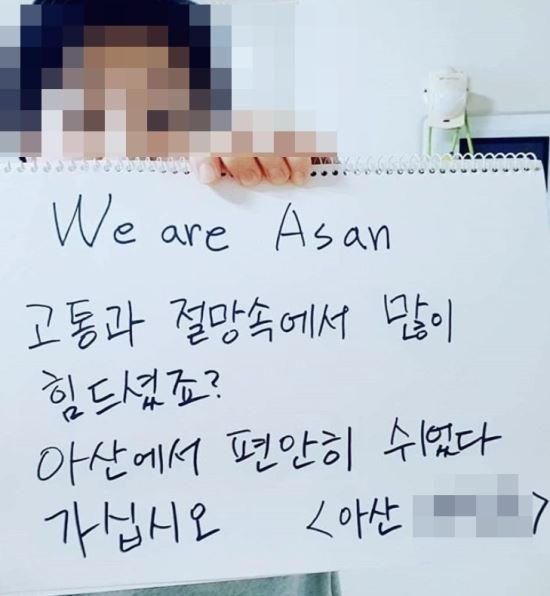 We are Asan
고통과 절망속에서 많이
힘드셨죠?
아산에서 편안히 쉬었다
가십시오 <아산 >